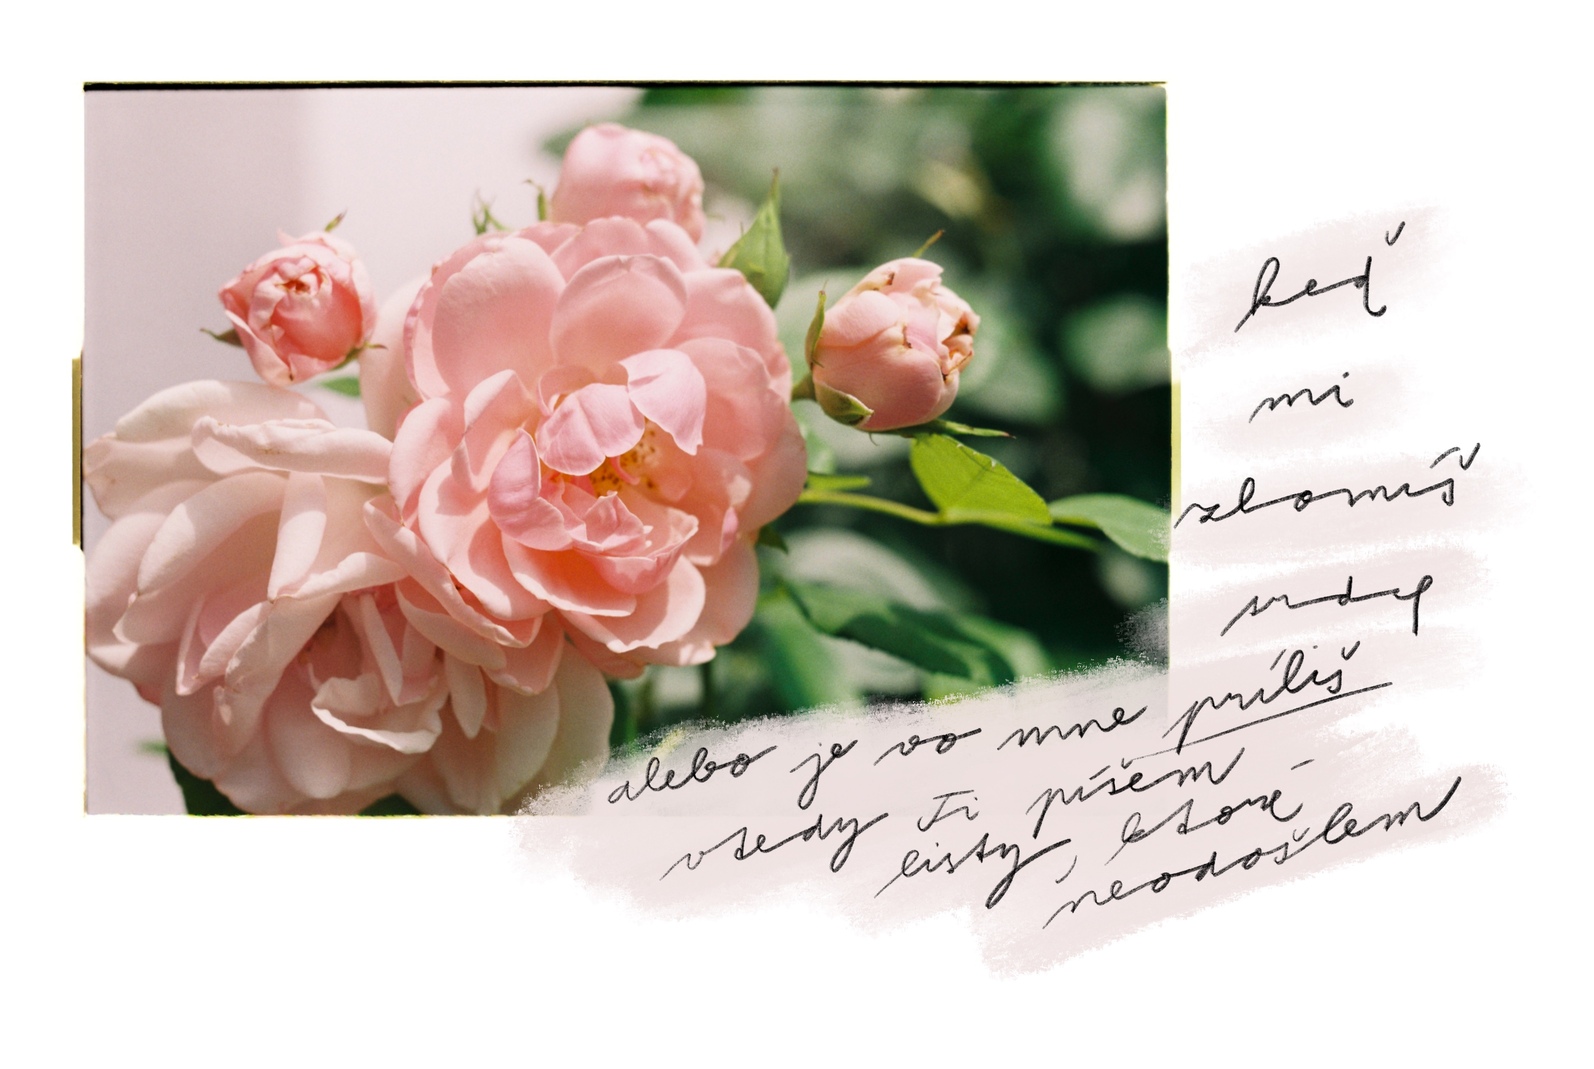 keď
mi
zlomíš
srdce
alebo je vo mne príliš
vtedy Ti píšem
listy, ktoré
neodošlem